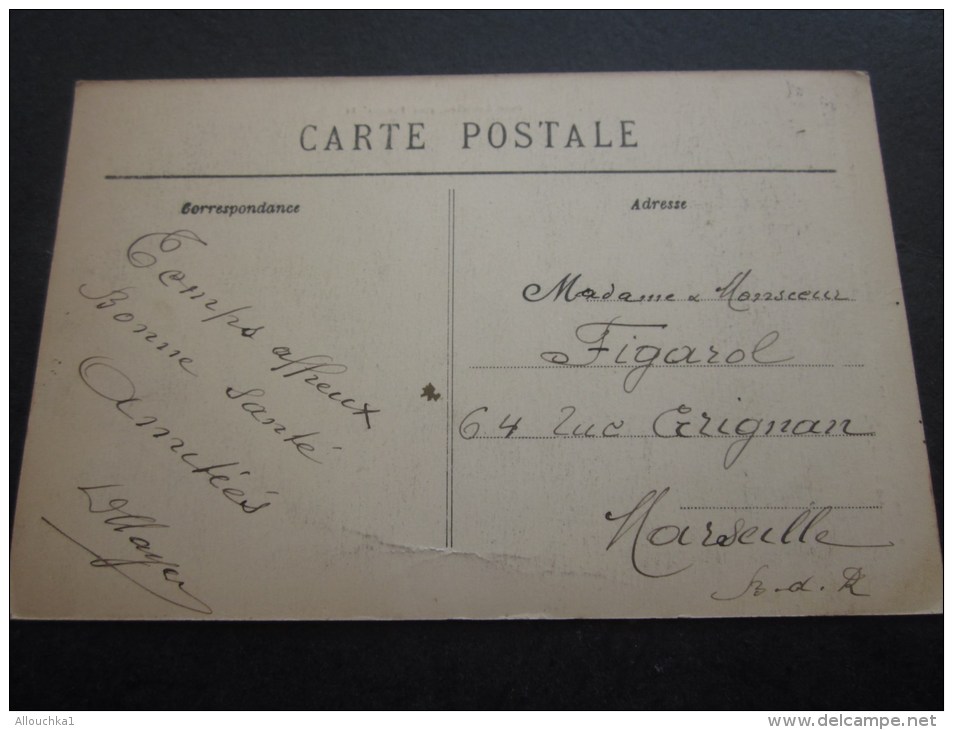 CARTE POSTALE
Correspondance
Temps affreux
Bonne santé
Amitiéés
Adresse
Madame & Monsieur
Figarol
64 rue Grignan
Marseille
B.-d. R
Allouchka1
www.delcampe.net